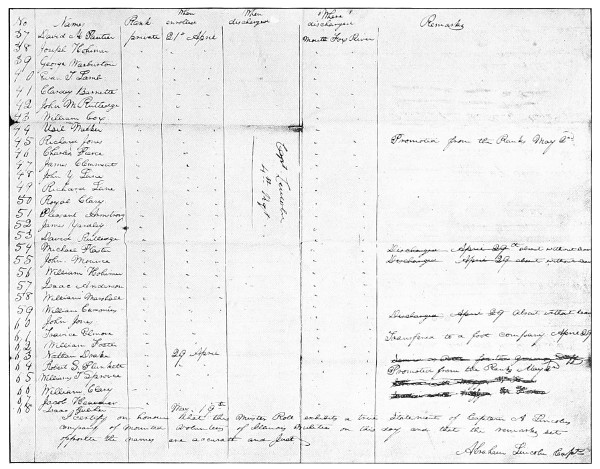 No Names Rank When enrolled When discharged "Where" discharged Remarks
37 David M Rentier private 21st April Mouth Fox River
38 Joseph Hohimer " " "
39 George Warburton " " "
40 Evan T Lamb " " "
41 Clardey Barnette " " "
42 John M Rutledge " " "
43 William Cox " " "
44 Usil Meeker " " "
45 Richard Jones " " " Promotion from the Ranks May
46 Charles Pierce " " "
47 James Clemment " " "
48 John Y Lane " " "
49 Richard Lane " " "
50 Royal Clary " " "
51 Pleasant Armstrong " " "
52 James " " "
53 David Rutledge " " "
54 Michael Plaster " " " Discharged April 29th absent without
55 John Mounce " " " Discharged April 29 absent without
56 William Hohimer " " "
57 Isaac Anderson " " "
58 William Marshall " " "
59 William Cummins " " " Discharged April 29 absent without leave
60 John Jones " " "
61 Travice Elmore " " " Transferred to a foot company April 29
62 William Foster " " "
63 Nathan Drake " 29 April "
64 Robert S Plunkett " " " Promotion from the Ranks May
65 William T Sprouce " " "
66 William Clary " " "
67 Jacob Heaverer " " "
68 Isaac Guliher " May 19th
Capt Lincoln
4th Regt
I certify on honour that this Muster Roll exhibits a true statement of Captain A Lincolns
company of mounted Volunteers of Illinois Militia on this day and that the remarks set
opposite the names are accurate and just
Abraham Lincoln Capt